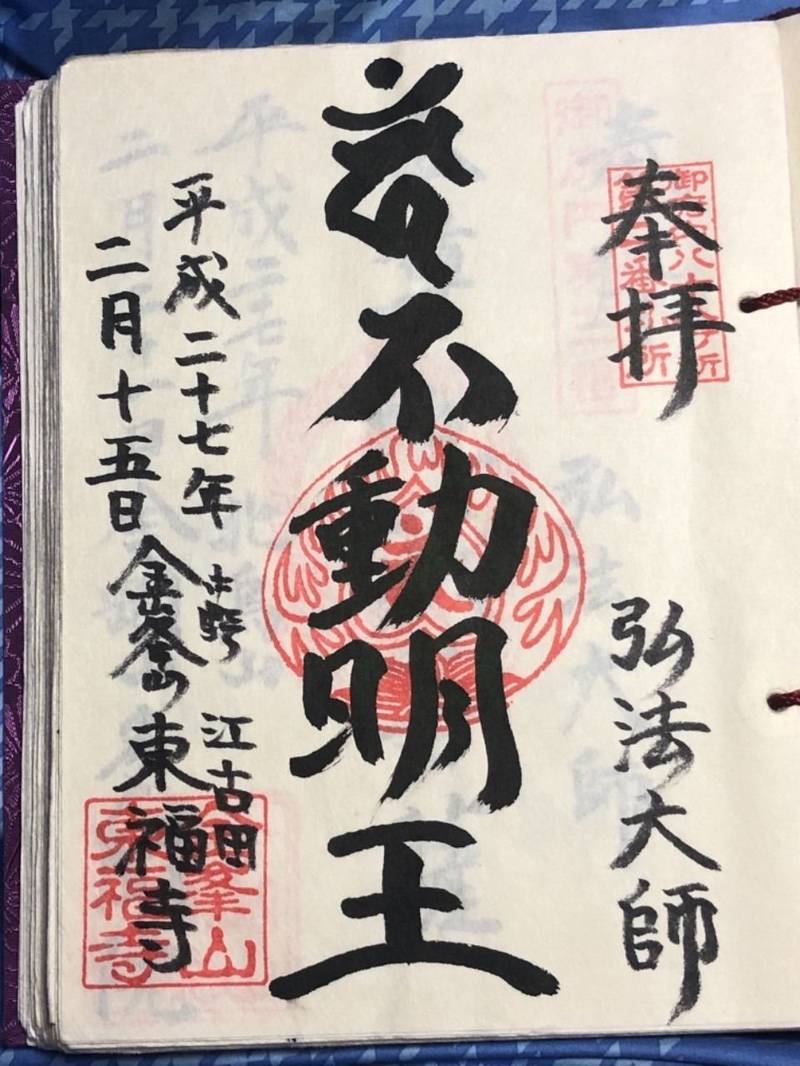 奉拝
弘法大師
不動明王
平成二十七年
二月十五日
中野
江古田
金峯山東福寺
御府内八十八ヶ所
金峯山
東福寺